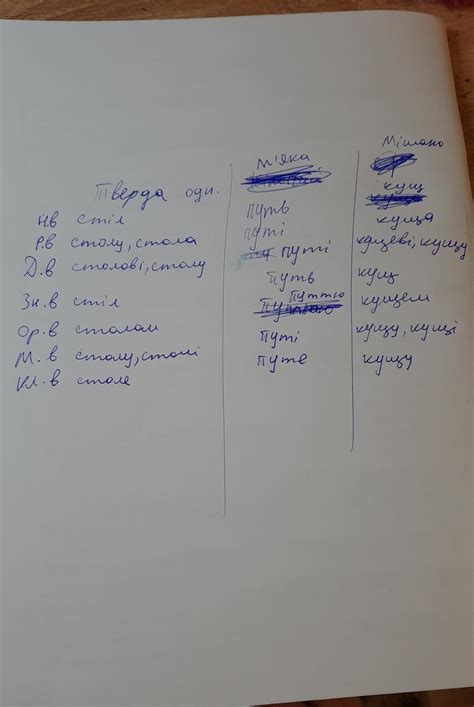 м'яка Мішана
Тверда одн. кущ
Н.в стіл путь куща
Р.в столу, стола путі кущеві, кущу
Д.в столові, столу путі кущ
Зн.в стіл путь кущем
Ор.в столом путтю кущу, кущі
М.в столу, столі путі кущу
Кл.в столе путе